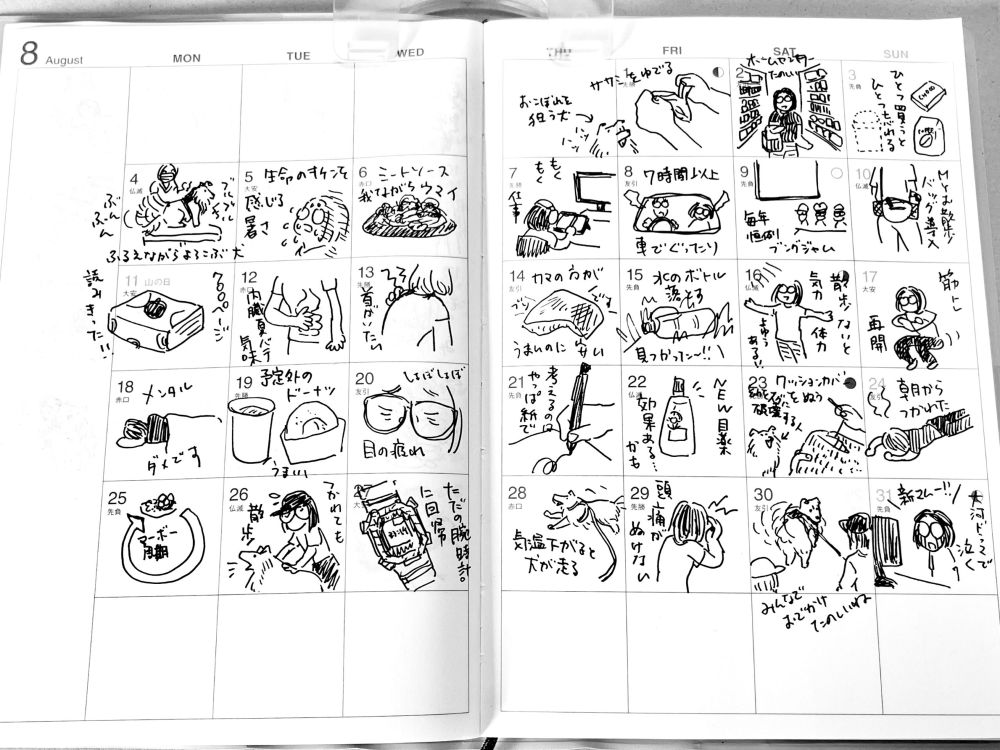 8 August
MON
TUE
WED
THU
FRI
SAT
SUN
ササミをゆでる
おこぼれを
狙う犬
2
ホームセンター
たのしい
3
先負
ひとつ買うと
ひとつ忘れる
4
仏滅
ぶんぶん
ブルブル
ふるえながらよろこぶ犬
5
大安
生命のキケンを
感じる
暑さ
6
赤口
ミートソース
我ながらウマイ
7
先勝
もくもく
仕事
8
友引
7時間以上
車でぐったり
9
先負
毎年
恒例
ブングジャム
10
仏滅
Myお散歩
バッグ導入
11
山の日
大安
700ページ
読みきったー!!
12
赤口
内臓夏バテ
気味
13
先勝
首がいたい
14
友引
カマの方が
うまいのに
安い
15
先負
水のボトル
落とす
見つかった〜!!
16
仏滅
散歩ないと
気力
体力
17
大安
筋トレ
再開
18
赤口
メンタル
ダメです
19
先勝
予定外の
ドーナツ
うまい
20
友引
しょぼしょぼ
目の疲れ
21
先負
考えるのは
やっぱ紙で
22
仏滅
NEW目薬
効果ある…
かも
23
クッションカバー
をぬう
破壊する人
24
友引
朝から
つかれた
25
先負
マーボー
周期
26
仏滅
つかれても
散歩
ただの腕時計。
に回帰
28
赤口
気温下がると
犬が走る
29
先勝
頭痛が
ぬけない
30
友引
みんなで
おでかけ
たのしいね
31
先負
新スムー!!
大河ドラマ
泣く